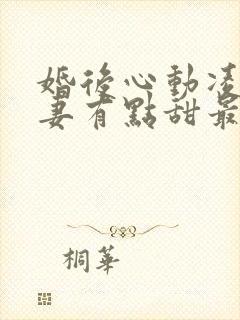 婚後心動凌
妻有點甜最
桐華